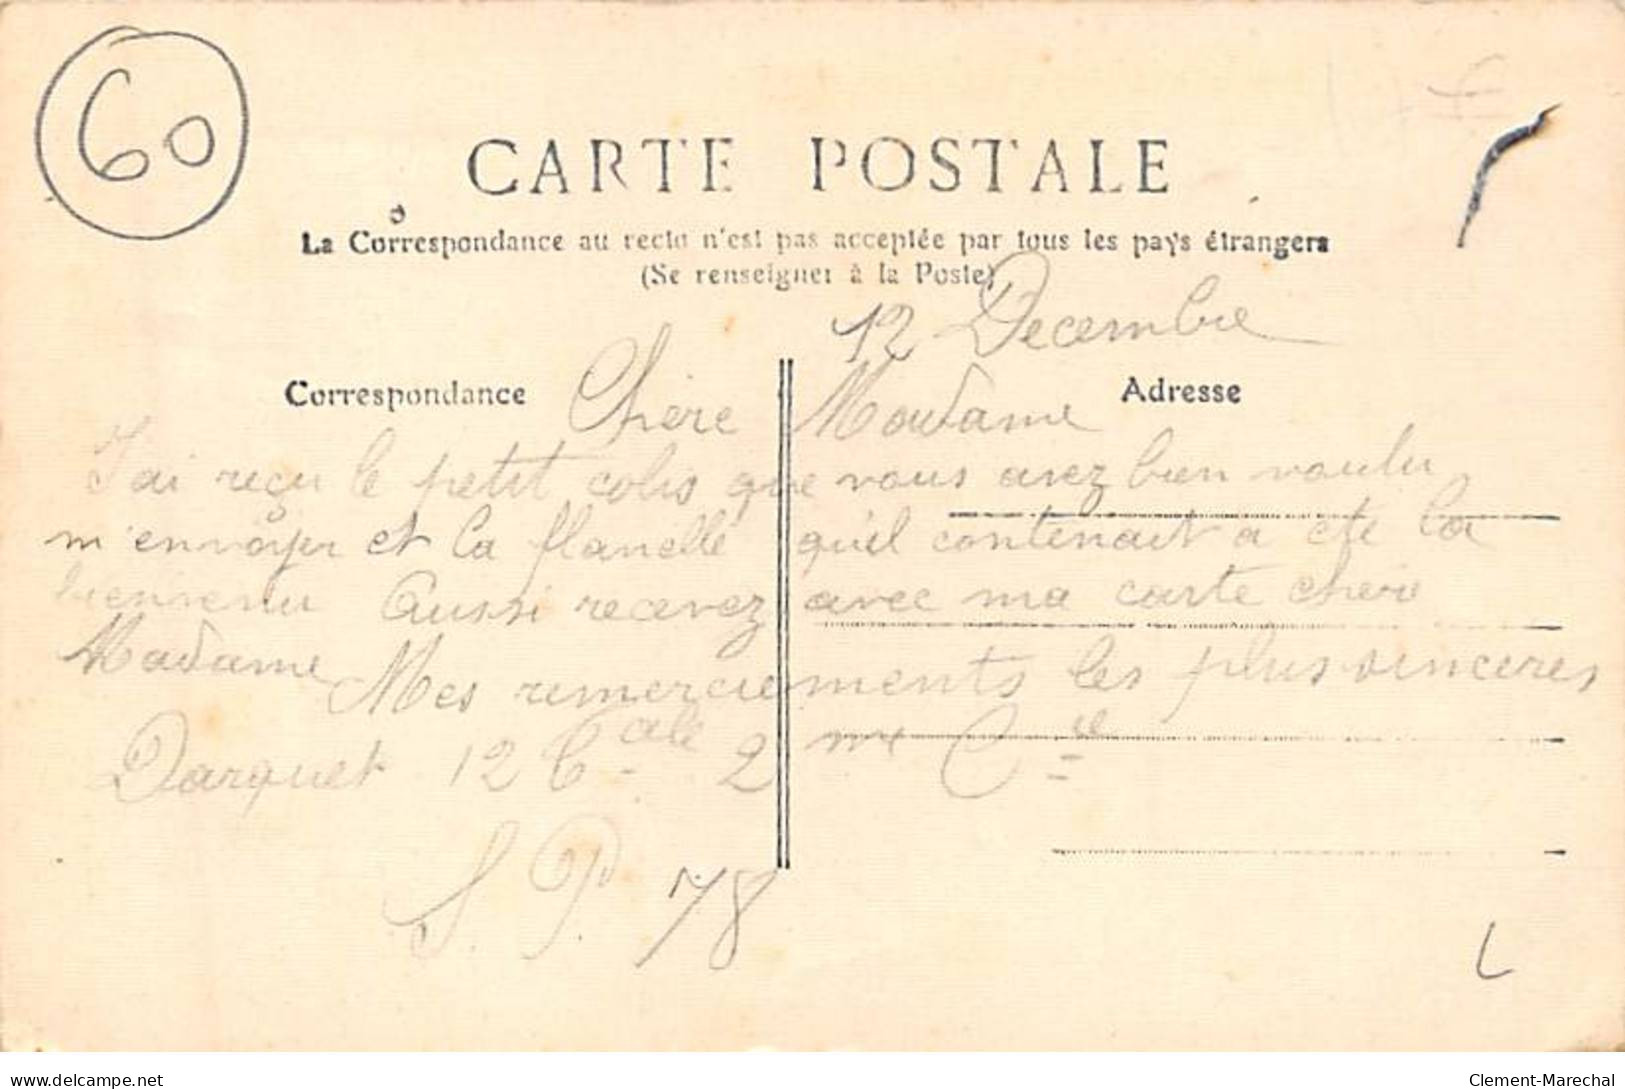 60
CARTE POSTALE
La Correspondance au recto n'est pas acceptée par tous les pays étrangers
(Se renseigner à la Poste)
12 Decembre
Correspondance
Adresse
Chère Madame
J'ai reçu le petit colis que vous avez bien voulu
m'envoyer et la flanelle qu'il contenait a ete la
bienvenu Aussi recevez avec ma carte chère
Madame Mes remerciements les plus sinceres
Darquet 12 C ale 2 me Cie
S. P. 78
L
delcampe.net
Clement-Marechal